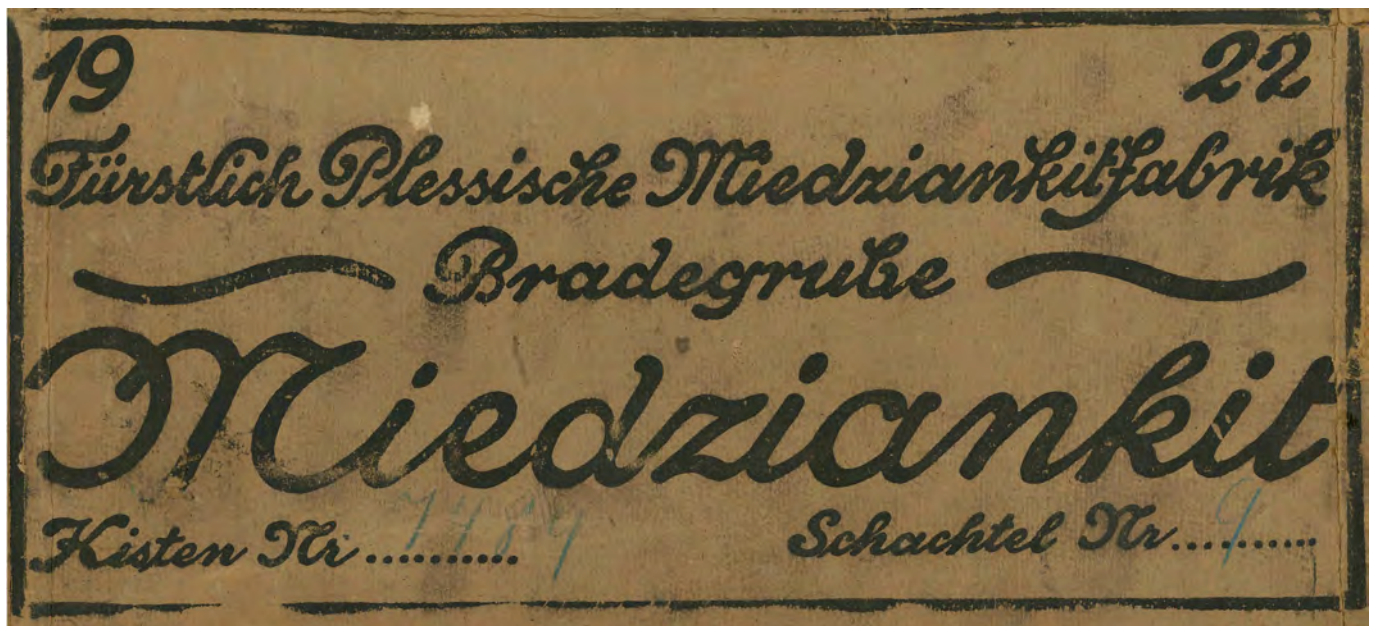 19 22
Fürstlich Plessische Miedziankitfabrik
Bradegrube
Miedziankit
Kisten Nr ..........
Schachtel Nr .......... 9